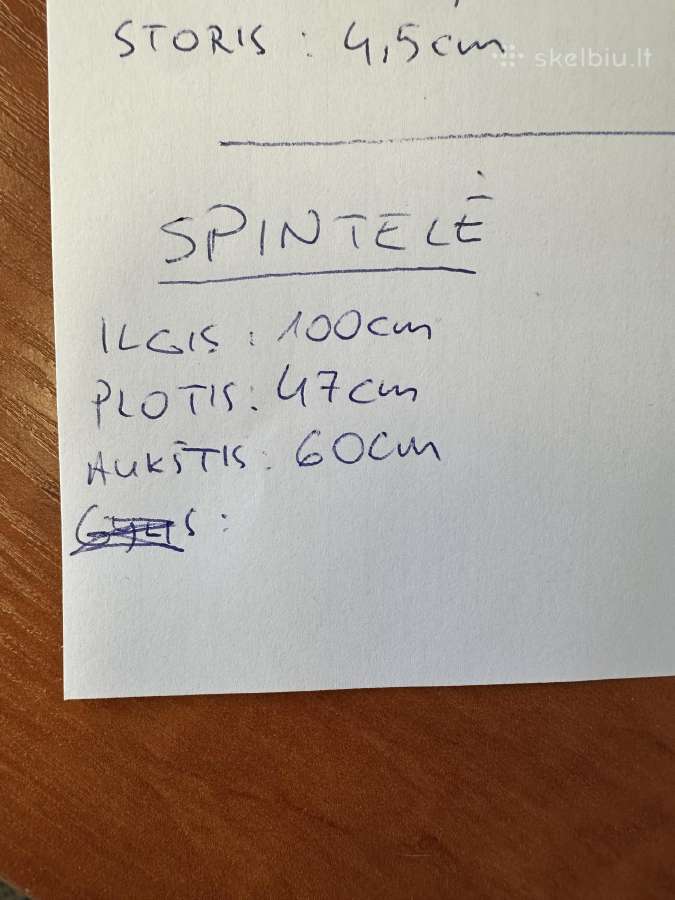 STORIS : 4,5cm
skelbiu.lt
SPINTELĖ
ILGIS : 100cm
PLOTIS : 47cm
AUKŠTIS : 60cm